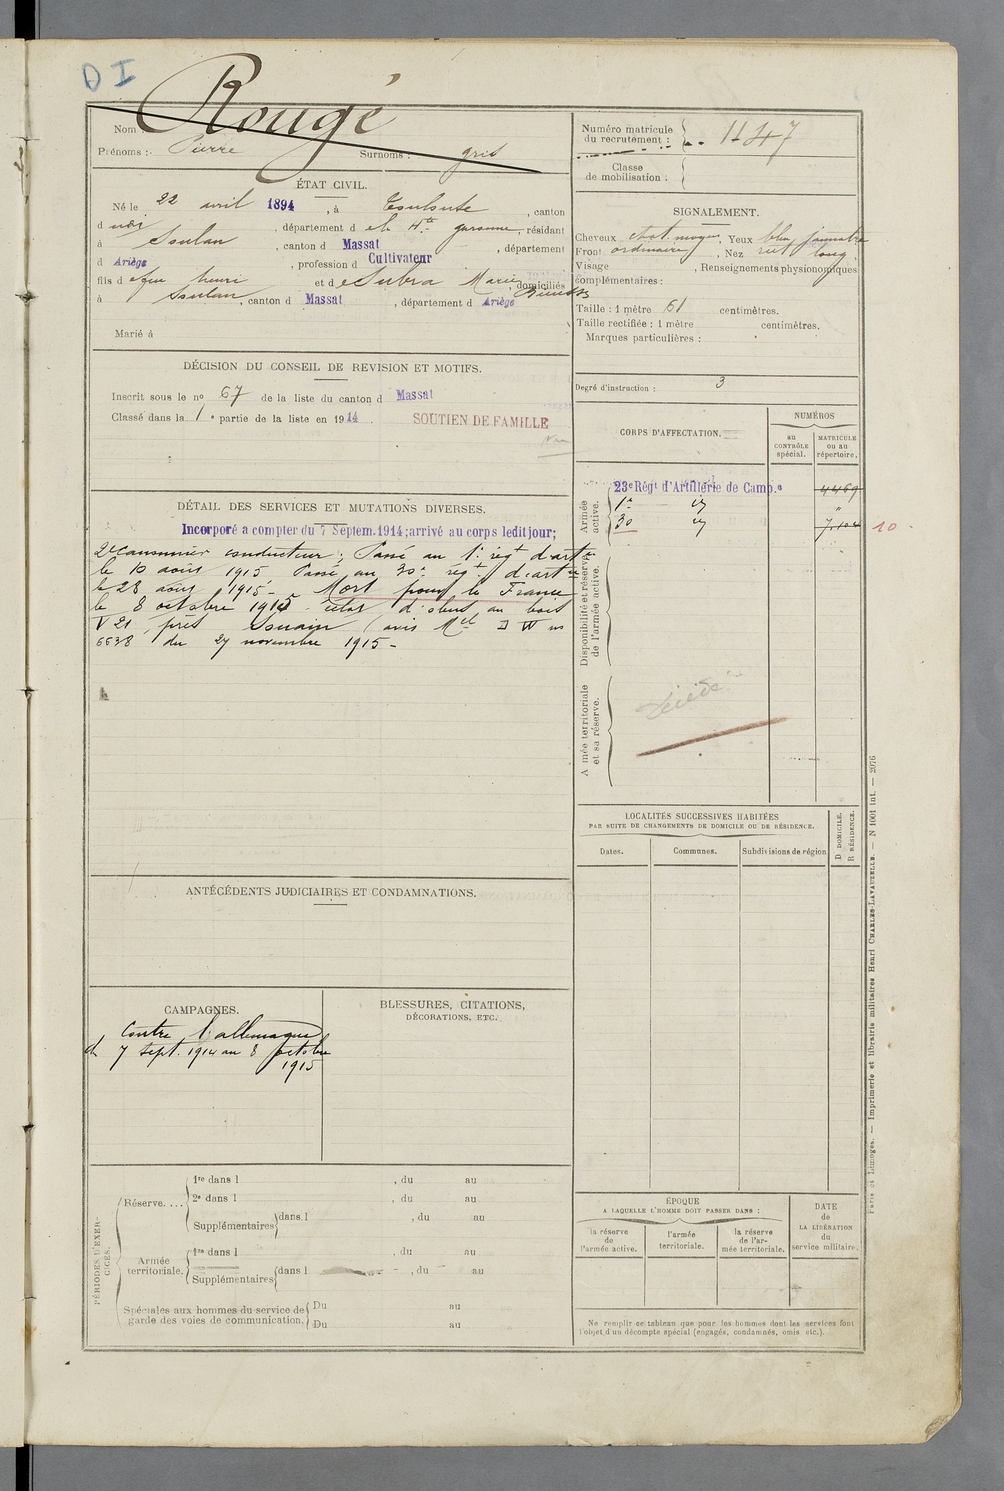 D I
Rougé
Nom :
Prénoms : Pierre Surnoms : gris
Numéro matricule
du recrutement : 1147
Classe
de mobilisation :
ÉTAT CIVIL.
Né le 22 avril 1894, à Toulouse, canton
d udi, département d e la Hte garonne, résidant
à Soulan, canton d Massat, département
d Ariège, profession d Cultivateur
fils d e feu henri et d e Subra Marie, domiciliés
à Soulan, canton d Massat, département d Ariège
Marié à
SIGNALEMENT.
Cheveux chat. moyen, Yeux bleu jaunâtre
Front ordinaire, Nez rect. long
Visage , Renseignements physionomiques
complémentaires :
Taille : 1 mètre 61 centimètres.
Taille rectifiée : 1 mètre centimètres.
Marques particulières :
Degré d'instruction : 3
DÉCISION DU CONSEIL DE REVISION ET MOTIFS.
Inscrit sous le no 67 de la liste du canton d Massat
Classé dans la 1e partie de la liste en 1914.
SOUTIEN DE FAMILLE
CORPS D'AFFECTATION.
NUMÉROS
au
CONTRÔLE
spécial.
MATRICULE
ou au
répertoire.
Armée
active.
23e Régt d'Artillerie de Camp.e 4469
1er "
30 7.104
10
Disponibilité et réserve
de l'armée active.
Armée territoriale
et sa réserve.
Décédé
DÉTAIL DES SERVICES ET MUTATIONS DIVERSES.
Incorporé a compter du 7 Septem. 1914; arrivé au corps ledit jour;
2e Canonnier conducteur; Passé au 1er régt d'artie
le 10 août 1915. Passé au 30e régt d'artie
le 28 août 1915. Mort pour la France
le 8 octobre 1915 éclat d'obus au bois
V 21 près Souain (avis Mel
6638 du 27 novembre 1915 -
LOCALITÉS SUCCESSIVES HABITÉES
PAR SUITE DE CHANGEMENTS DE DOMICILE OU DE RÉSIDENCE.
Dates.
Communes.
Subdivisions de région
D DOMICILE.
R RÉSIDENCE.
ANTÉCÉDENTS JUDICIAIRES ET CONDAMNATIONS.
CAMPAGNES.
Contre l'allemagne
du 7 sept. 1914 au 8 octobre
1915
BLESSURES, CITATIONS,
DÉCORATIONS, ETC.
PÉRIODES D'EXER-
CICES.
Réserve....
1re dans l , du au
2e dans l , du au
Supplémentaires dans l , du au
Armée
territoriale.
1re dans l , du au
Supplémentaires dans l , du au
Spéciales aux hommes du service de
garde des voies de communication.
Du au
Du au
ÉPOQUE
A LAQUELLE L'HOMME DOIT PASSER DANS :
la réserve
de
l'armée active.
l'armée
territoriale.
la réserve
de l'ar-
mée territoriale.
DATE
de
LA LIBÉRATION
du
service militaire.
Ne remplir ce tableau que pour les hommes dont les services font
l'objet d'un décompte spécial (engagés, condamnés, omis etc.).
Paris et Limoges. — Imprimerie et librairie militaires Henri CHARLES-LAVAUZELLE. — N 1001 int. — 2076